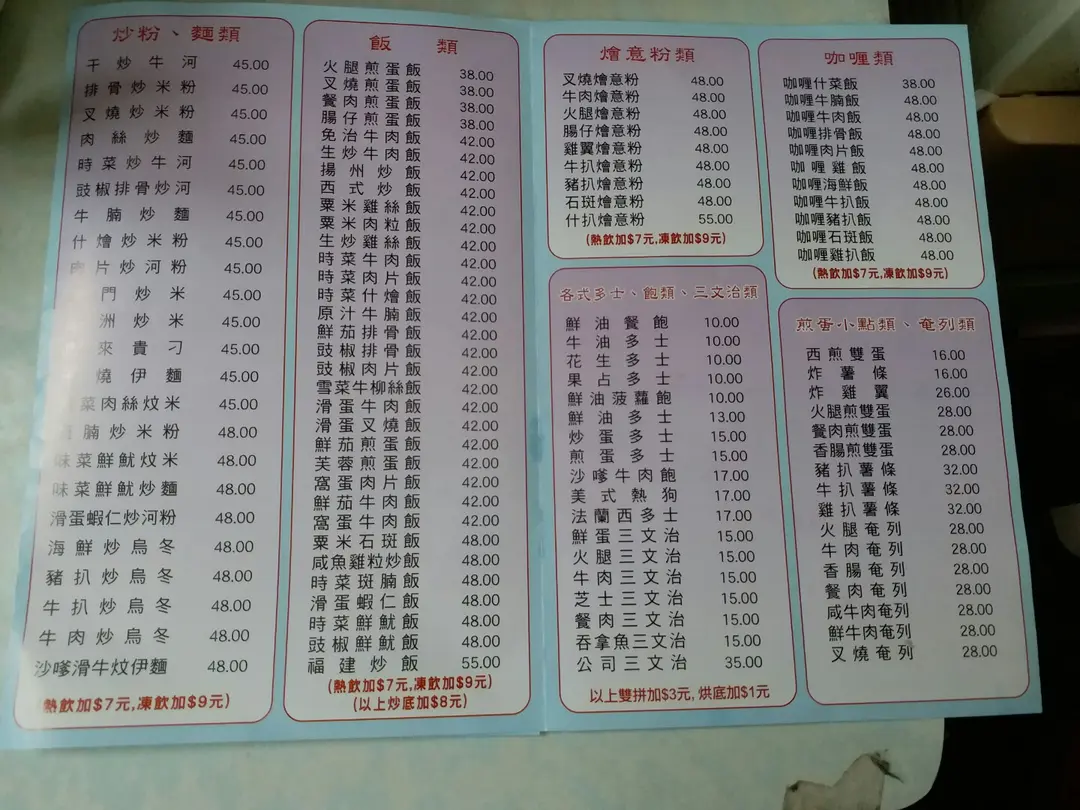 炒粉、麵類
干炒牛河 45.00
排骨炒米粉 45.00
叉燒炒米粉 45.00
肉絲炒麵 45.00
時菜炒牛河 45.00
豉椒排骨炒河 45.00
牛腩炒麵 45.00
什燴炒米粉 45.00
肉片炒河粉 45.00
門炒米 45.00
洲炒米 45.00
來貴刁 45.00
燒伊麵 45.00
菜肉絲炆米 45.00
腩炒米粉 48.00
味菜鮮魷炆米 48.00
味菜鮮魷炒麵 48.00
滑蛋蝦仁炒河粉 48.00
海鮮炒烏冬 48.00
豬扒炒烏冬 48.00
牛扒炒烏冬 48.00
牛肉炒烏冬 48.00
沙嗲滑牛炆伊麵 48.00
熱飲加$7元,凍飲加$9元)
飯類
火腿煎蛋飯 38.00
叉燒煎蛋飯 38.00
餐肉煎蛋飯 38.00
腸仔煎蛋飯 38.00
免治牛肉飯 42.00
生炒牛肉飯 42.00
揚州炒飯 42.00
西式炒飯 42.00
粟米雞絲飯 42.00
粟米肉粒飯 42.00
生炒雞絲飯 42.00
時菜牛肉飯 42.00
時菜肉片飯 42.00
時菜什燴飯 42.00
原汁牛腩飯 42.00
鮮茄排骨飯 42.00
豉椒排骨飯 42.00
豉椒肉片飯 42.00
雪菜牛柳絲飯 42.00
滑蛋牛肉飯 42.00
滑蛋叉燒飯 42.00
鮮茄煎蛋飯 42.00
芙蓉煎蛋飯 42.00
窩蛋肉片飯 42.00
鮮茄牛肉飯 42.00
窩蛋牛肉飯 42.00
粟米石斑飯 48.00
咸魚雞粒炒飯 48.00
時菜斑腩飯 48.00
滑蛋蝦仁飯 48.00
時菜鮮魷飯 48.00
豉椒鮮魷飯 48.00
福建炒飯 55.00
(熱飲加$7元,凍飲加$9元)
(以上炒底加$8元)
燴意粉類
叉燒燴意粉 48.00
牛肉燴意粉 48.00
火腿燴意粉 48.00
腸仔燴意粉 48.00
雞翼燴意粉 48.00
牛扒燴意粉 48.00
豬扒燴意粉 48.00
石斑燴意粉 48.00
什扒燴意粉 55.00
(熱飲加$7元,凍飲加$9元)
各式多士、飽類、三文治類
鮮油餐飽 10.00
牛油多士 10.00
花生多士 10.00
果占多士 10.00
鮮油菠蘿飽 10.00
鮮油多士 13.00
炒蛋多士 15.00
煎蛋多士 15.00
沙嗲牛肉飽 17.00
美式熱狗 17.00
法蘭西多士 17.00
鮮蛋三文治 15.00
火腿三文治 15.00
牛肉三文治 15.00
芝士三文治 15.00
餐肉三文治 15.00
吞拿魚三文治 15.00
公司三文治 35.00
以上雙拼加$3元, 烘底加$1元
咖喱類
咖喱什菜飯 38.00
咖喱牛腩飯 48.00
咖喱牛肉飯 48.00
咖喱排骨飯 48.00
咖喱肉片飯 48.00
咖喱雞飯 48.00
咖喱海鮮飯 48.00
咖喱牛扒飯 48.00
咖喱豬扒飯 48.00
咖喱石斑飯 48.00
咖喱雞扒飯 48.00
(熱飲加$7元,凍飲加$9元)
煎蛋小點類、奄列類
西煎雙蛋 16.00
炸薯條 16.00
炸雞翼 26.00
火腿煎雙蛋 28.00
餐肉煎雙蛋 28.00
香腸煎雙蛋 28.00
豬扒薯條 32.00
牛扒薯條 32.00
雞扒薯條 32.00
火腿奄列 28.00
牛肉奄列 28.00
香腸奄列 28.00
餐肉奄列 28.00
咸牛肉奄列 28.00
鮮牛肉奄列 28.00
叉燒奄列 28.00